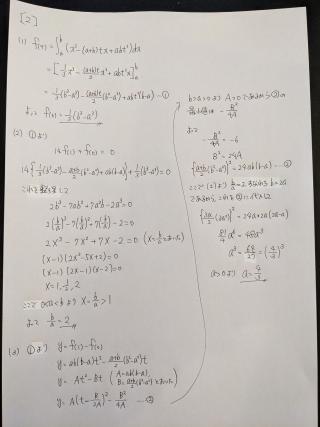 [2]
(1) f(t) = ∫_a^b (x² - (a+b)tx + abt²)dx
= [1/3 x³ - (a+b)t/2 x² + abt²x]_a^b
= 1/3(b³-a³) - (a+b)t/2 (b²-a²) + abt²(b-a) … ①
よって f(0) = 1/3(b³-a³)
(2) ①より
14f(1) + f(0) = 0
14{1/3(b³-a³) - a+b/2 (b²-a²) + ab(b-a)} + 1/3(b³-a³) = 0
これを整理して
2b³ - 7ab² + 7a²b - 2a³ = 0
2(b/a)³ - 7(b/a)² + 7(b/a) - 2 = 0
2X³ - 7X² + 7X - 2 = 0 (X = b/a とおいた)
(X-1)(2X²-5X+2) = 0
(X-1)(2X-1)(X-2) = 0
X = 1, 1/2, 2
ここで 0<a<b より X = b/a > 1
よって b/a = 2
(3) ①より y = f(t) - f(0)
y = ab(b-a)t² - a+b/2 (b²-a²)t
y = At² - Bt (A = ab(b-a), B = a+b/2 (b²-a²) とおいた)
y = A(t - B/2A)² - B²/4A … ②
b>a>0より A>0 であるから ②の
最小値は - B²/4A
よって
- B²/4A = -6
B² = 24A
{a+b/2 (b²-a²)}² = 24ab(b-a) … ③
ここで (2)より b/a = 2 すなわち b = 2a
であるから、これを③に代入して
{3a/2 (3a²)}² = 24a×2a(2a-a)
81/4 a⁶ = 48a³
a³ = 64/27 = (4/3)³
a>0より a = 4/3